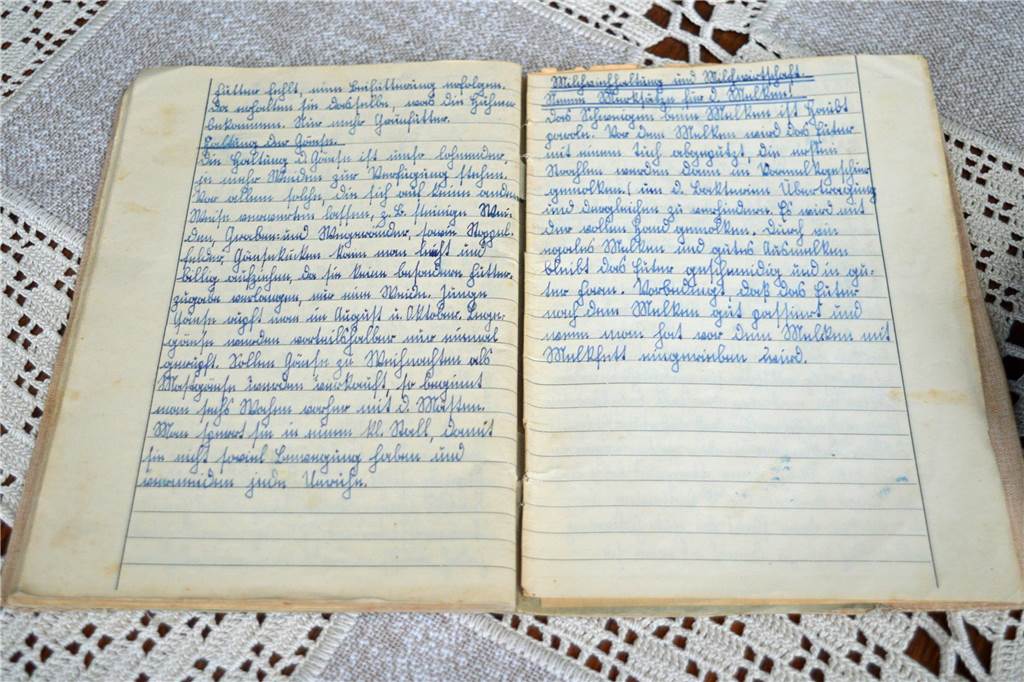 Futter fehlt, eine Beifütterung erfolgen.
Da erhalten sie dasselbe, was die Hühner
bekommen. Nur mehr Grünfutter.
Haltung der Gänse.
Die Haltung d. Gänse ist umso lohnender,
je mehr Weiden zur Verfügung stehen.
Vor allem solche, die sich auf keine andere
Weise verwerten lassen, z.B. steinige Wei-
den, Graben- und Wegeränder, sowie Stoppel-
felder, Gänseküken kann man leicht und
billig aufziehen, da sie keine besondere Futter-
zugabe verlangen, nur eine Weide. Junge
Gänse rupft man im August u. Oktober.
gänse werden vorteilshalber nur einmal
gerupft. Sollen Gänse zu Weihnachten als
Mastgänse werden verkauft, so beginnt
man sechs Wochen vorher mit d. Mästen.
Man sperrt sie in einem kl. Stall, damit
sie nicht soviel Bewegung haben und
vermeiden jede Unruhe.
Milchviehhaltung und Milchwirtschaft.
Neun Merksätze für d. Melken!
Das Schweigen beim Melken ist Haupt
parole. Vor dem Melken wird das Euter
mit einem Tuch abgeputzt, die ersten
Strahlen werden dann im Vormelkgeschirr
gemolken, um d. Bakterien Übertragung
und dergleichen zu verhindern. Es wird mit
der vollen Hand gemolken. Durch ein
Melken und gutes Ausmelken
bleibt das Euter geschmeidig und in gu-
ter Form. Vorbedingt daß das Euter
nach dem Melken gut massiert und
wenn man hat vor dem Melken mit
Melkfett eingerieben wird.